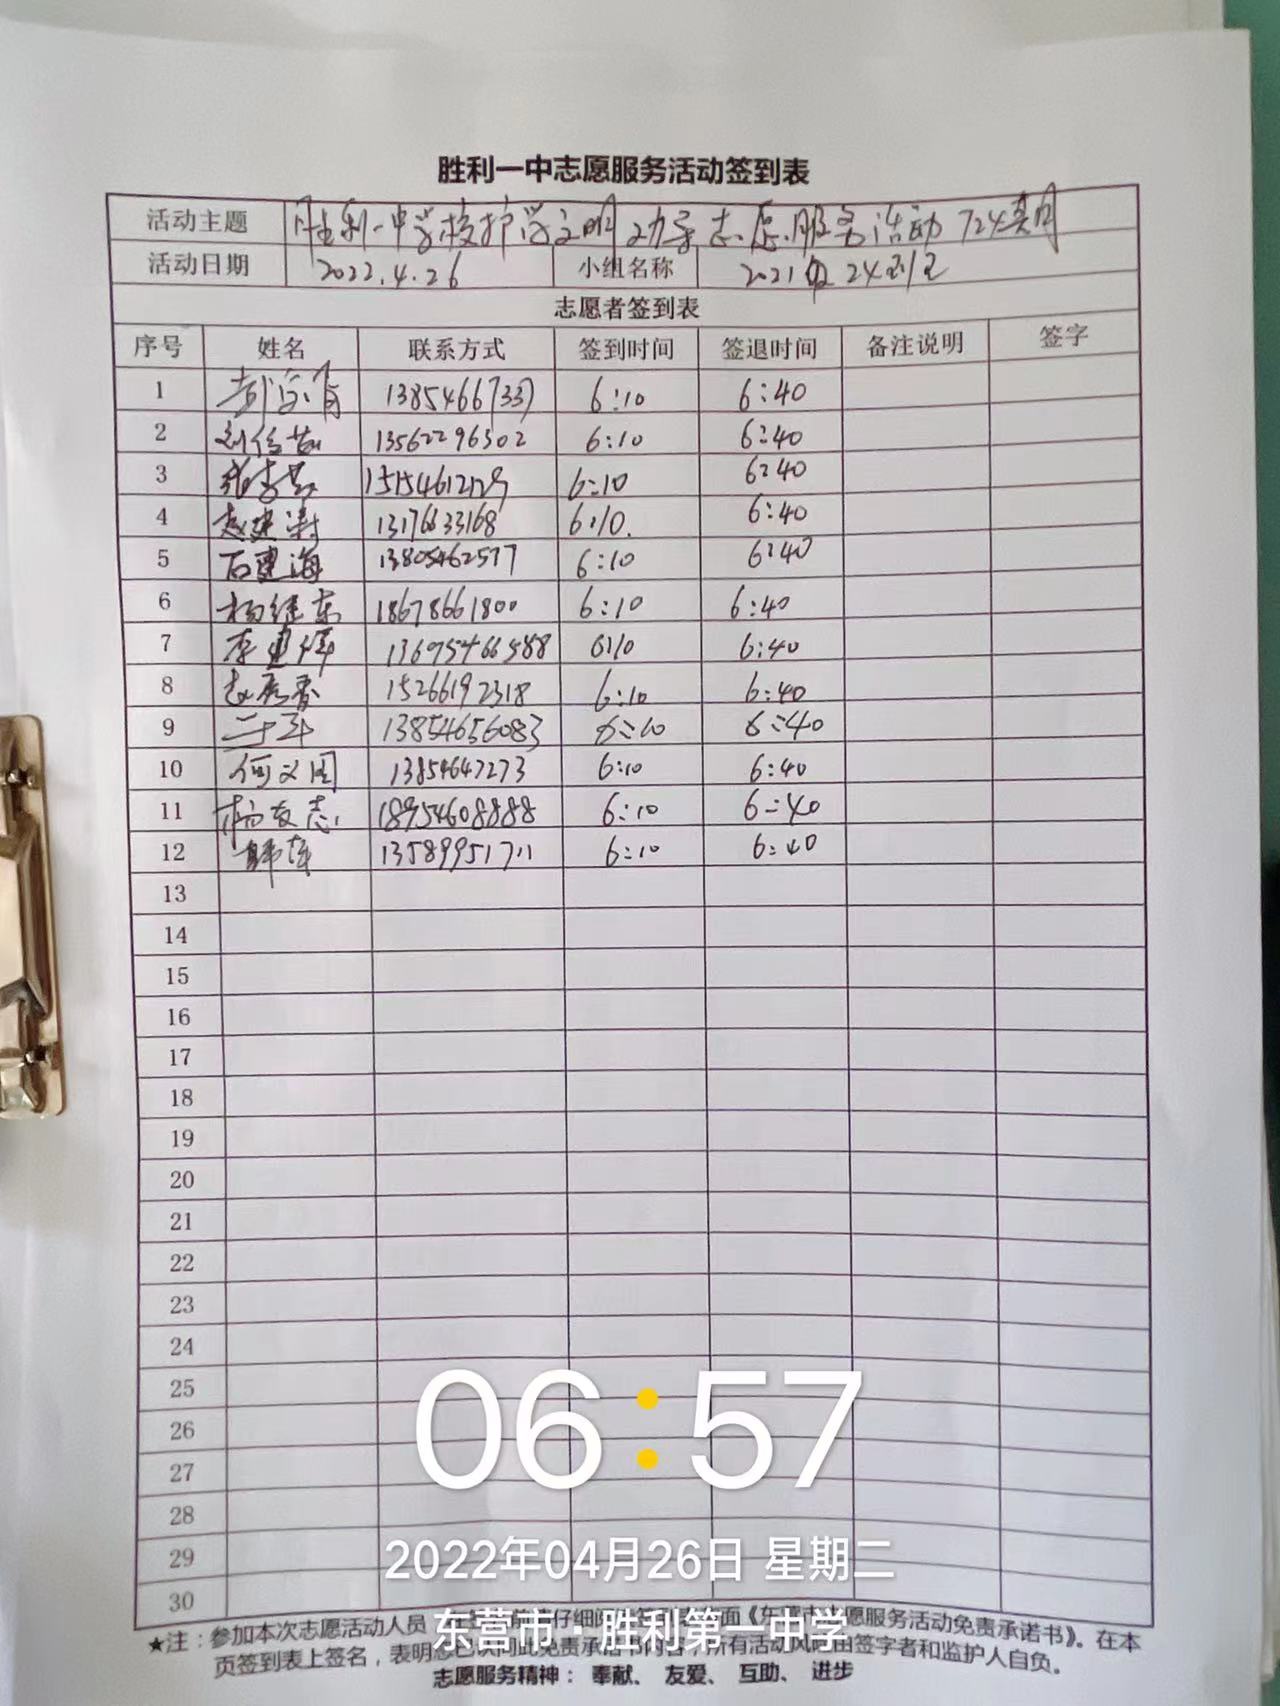 胜利一中志愿服务活动签到表
活动主题 胜利一中学校护学文明劝导志愿服务活动
活动日期 2022.4.26 小组名称 2021级24
志愿者签到表
序号 姓名 联系方式 签到时间 签退时间 备注说明 签字
1 6:10 6:40
2 13562296302 6:10 6:40
3 6:10 6:40
4 赵建 13176633168 6:10. 6:40
5 石建海 13805462577 6:10 6:40
6 杨继东 18678661800 6:10 6:40
7 李建 13695466588 6:10 6:40
8 15266192318 6:10 6:40
9 13854656083 6:10 6:40
10 何文国 13854647273 6:10 6:40
11 杨友志 18954608888 6:10 6:40
12 13589951711 6:10 6:40
13
14
15
16
17
18
19
20
21
22
23
24
25
26
27
28
29
30
06:57
2022年04月26日 星期二
东营市·胜利第一中学
★注：参加本次志愿活动人员 仔细阅 面《东营市志愿服务活动免责承诺书》。在本
页签到表上签名，表明您已认同此免责承诺书内容，所有活动风险由签字者和监护人自负。
志愿服务精神： 奉献、 友爱、 互助、 进步